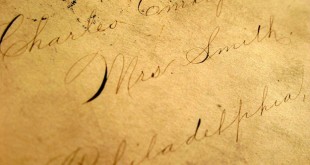 Charles
Mrs. Smith.
Philadelphia,